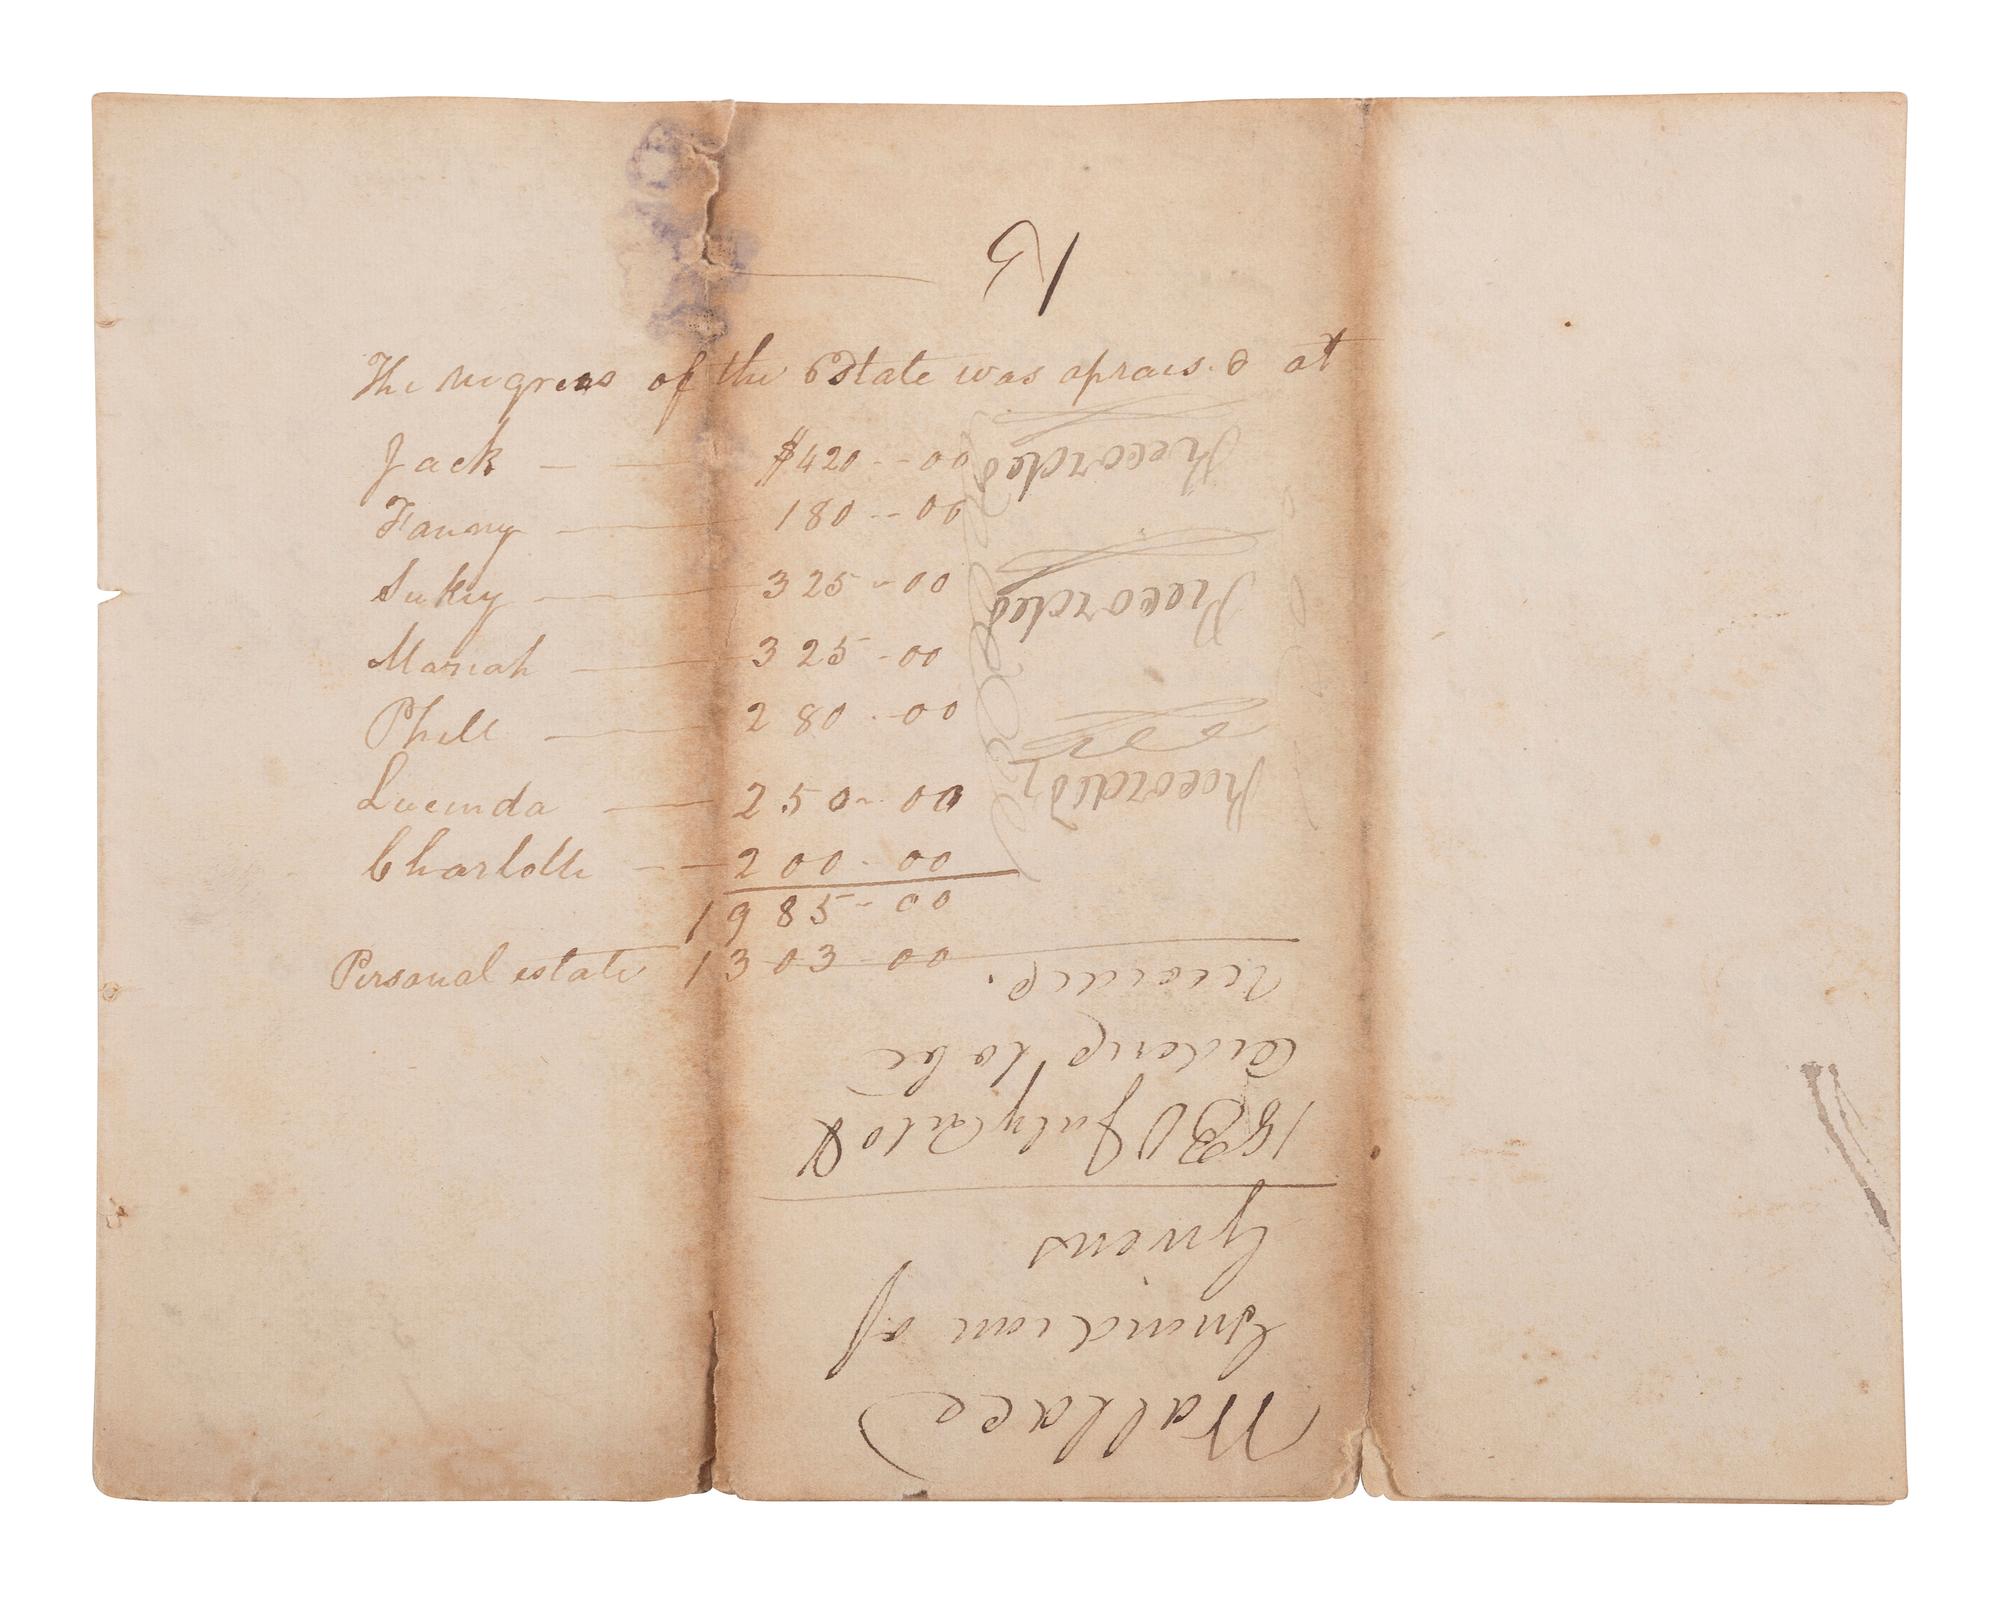 The negroes of the Estate was aprais.d at
Jack — — $420--00
Fanny — 180--00
Sukey — 325--00
Mariah — 325-00
Phill — 280-00
Lucinda — 250-00
Charlotte — 200-00
1985-00
Personal estate 1303-00
13
Wallace
Guardian of
Givens
1830 July Ct
to be
record.
Recorded
Recorded
Recorded